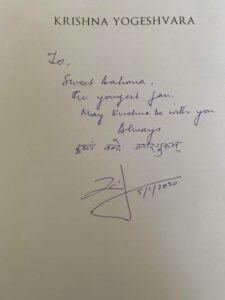 KRISHNA YOGESHVARA
To,
Sweet Aahana,
the yongest fan.
May Krishna be with you
Always
कृष्णं वन्दे जगद्गुरुम्
5/1/2020